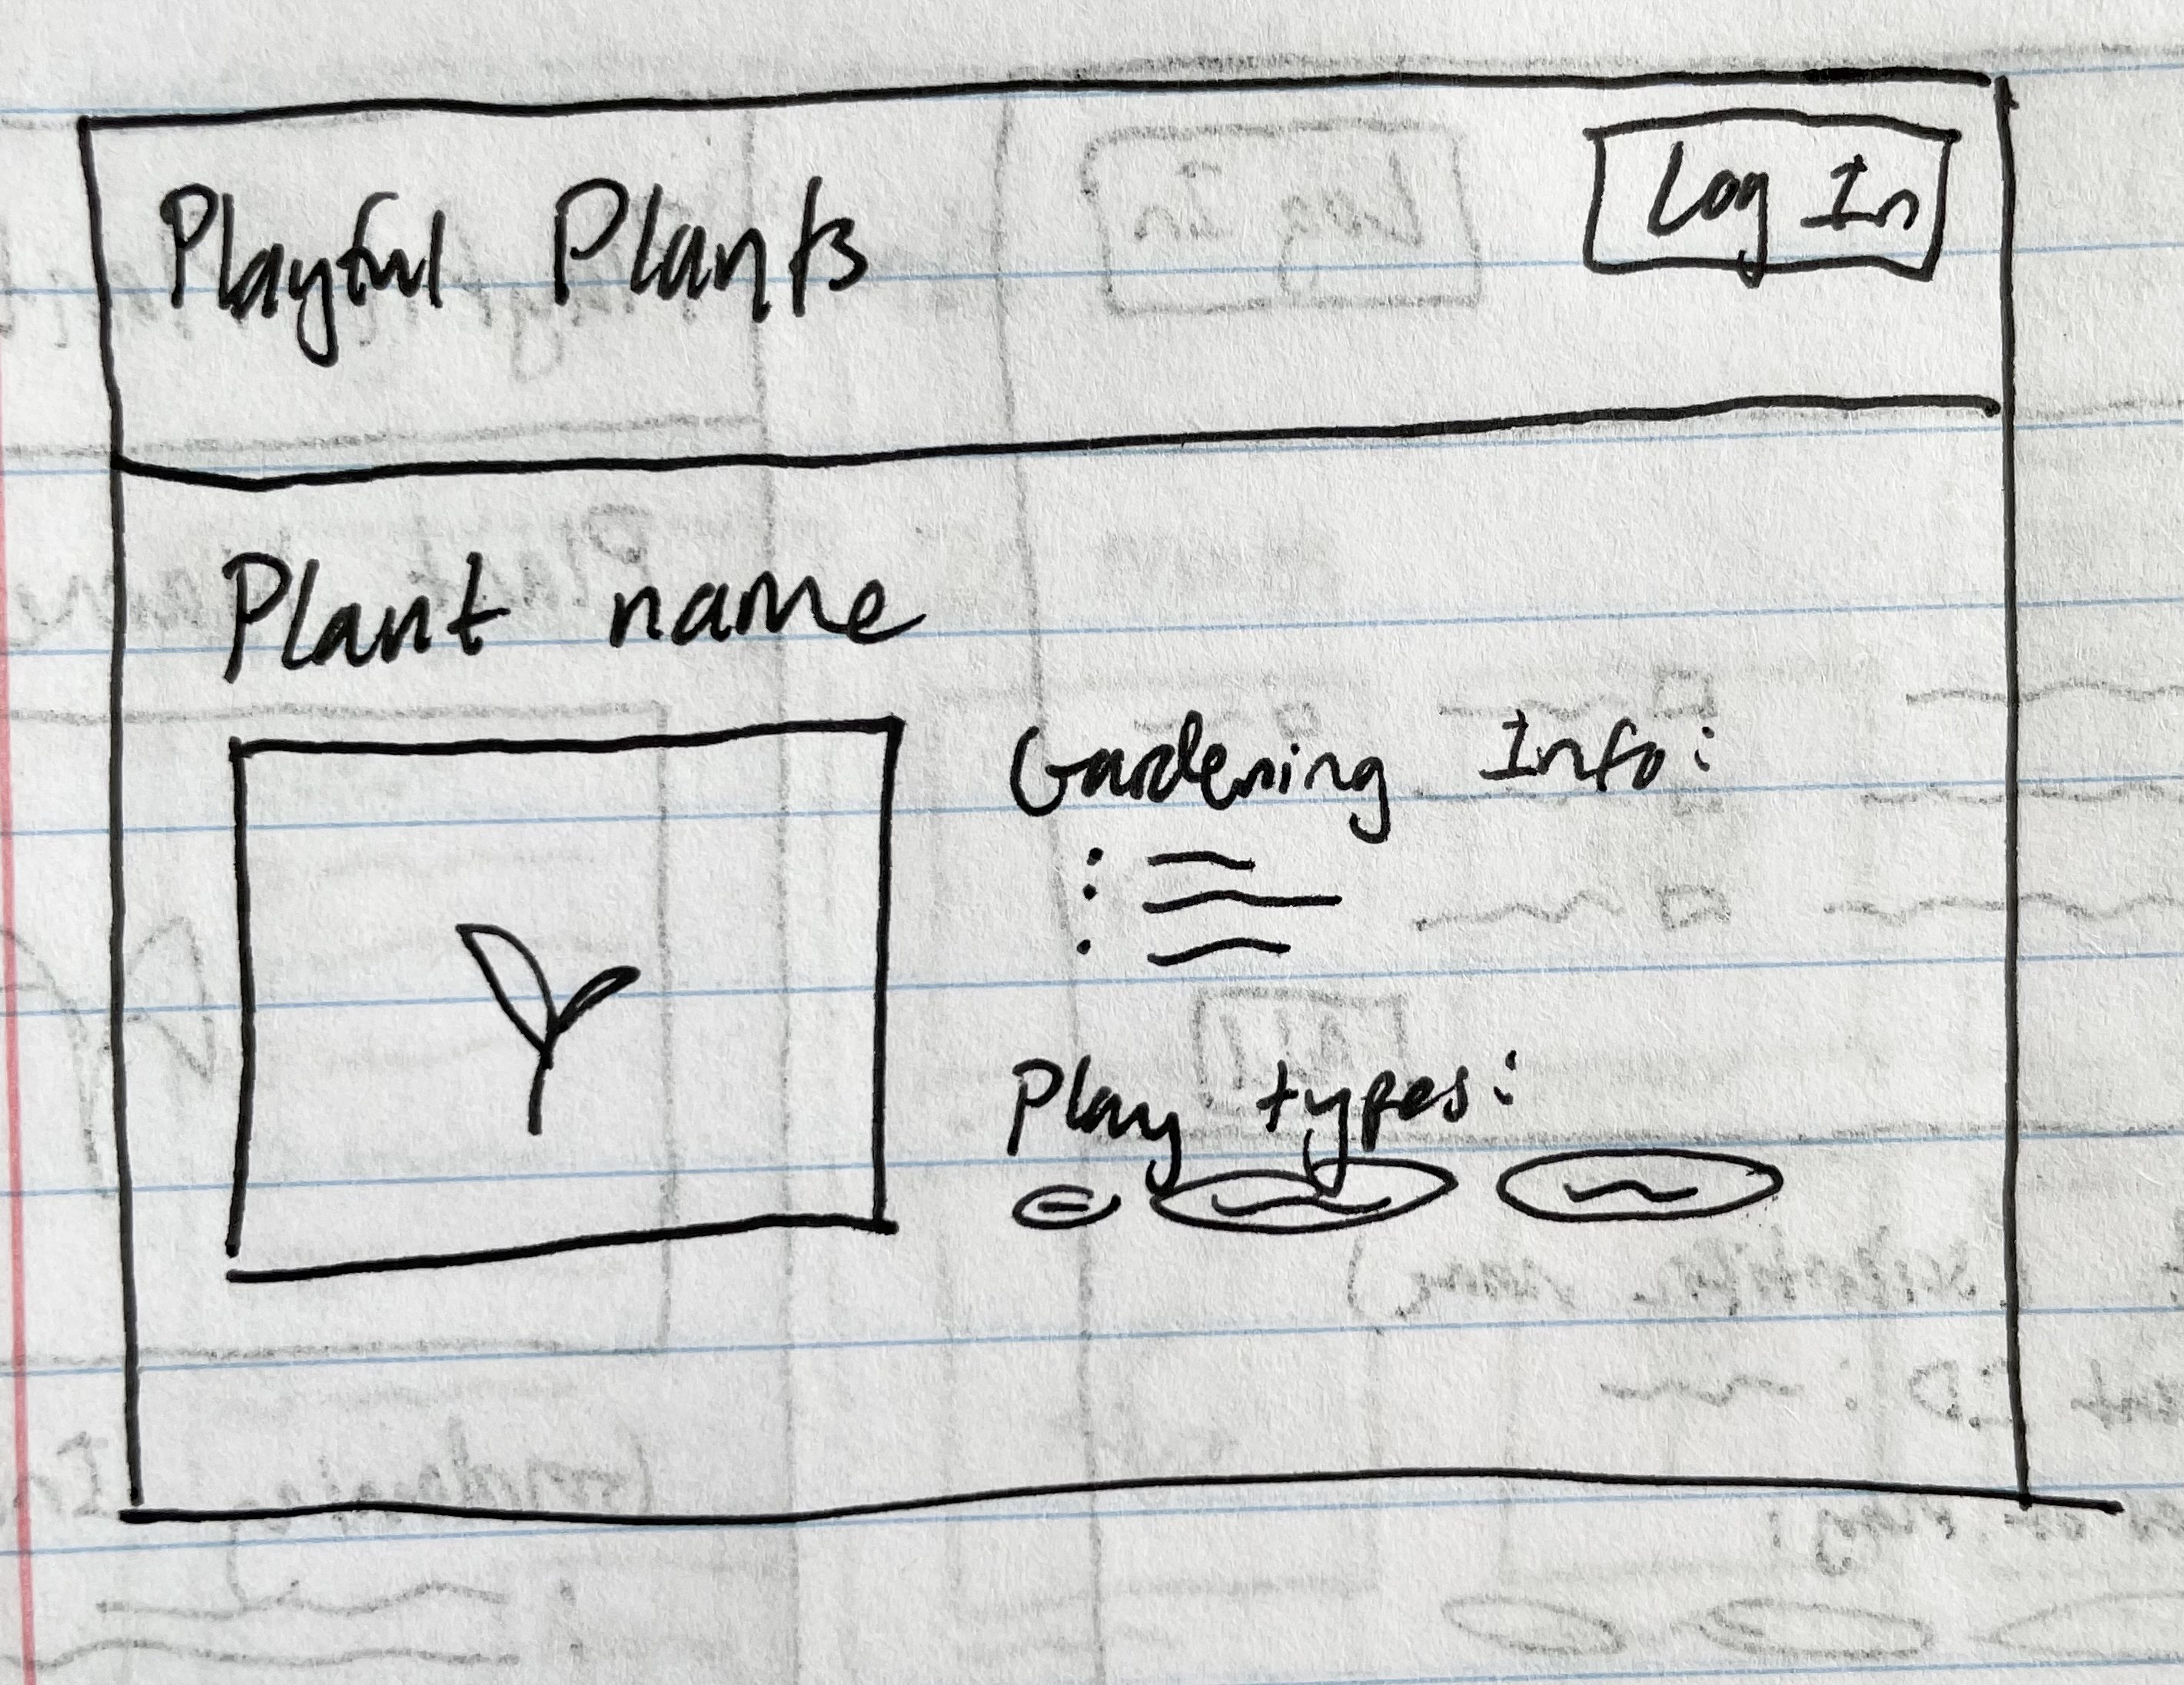 Playful Plants
Log In
Plant name
Gardening Info:
Play types: